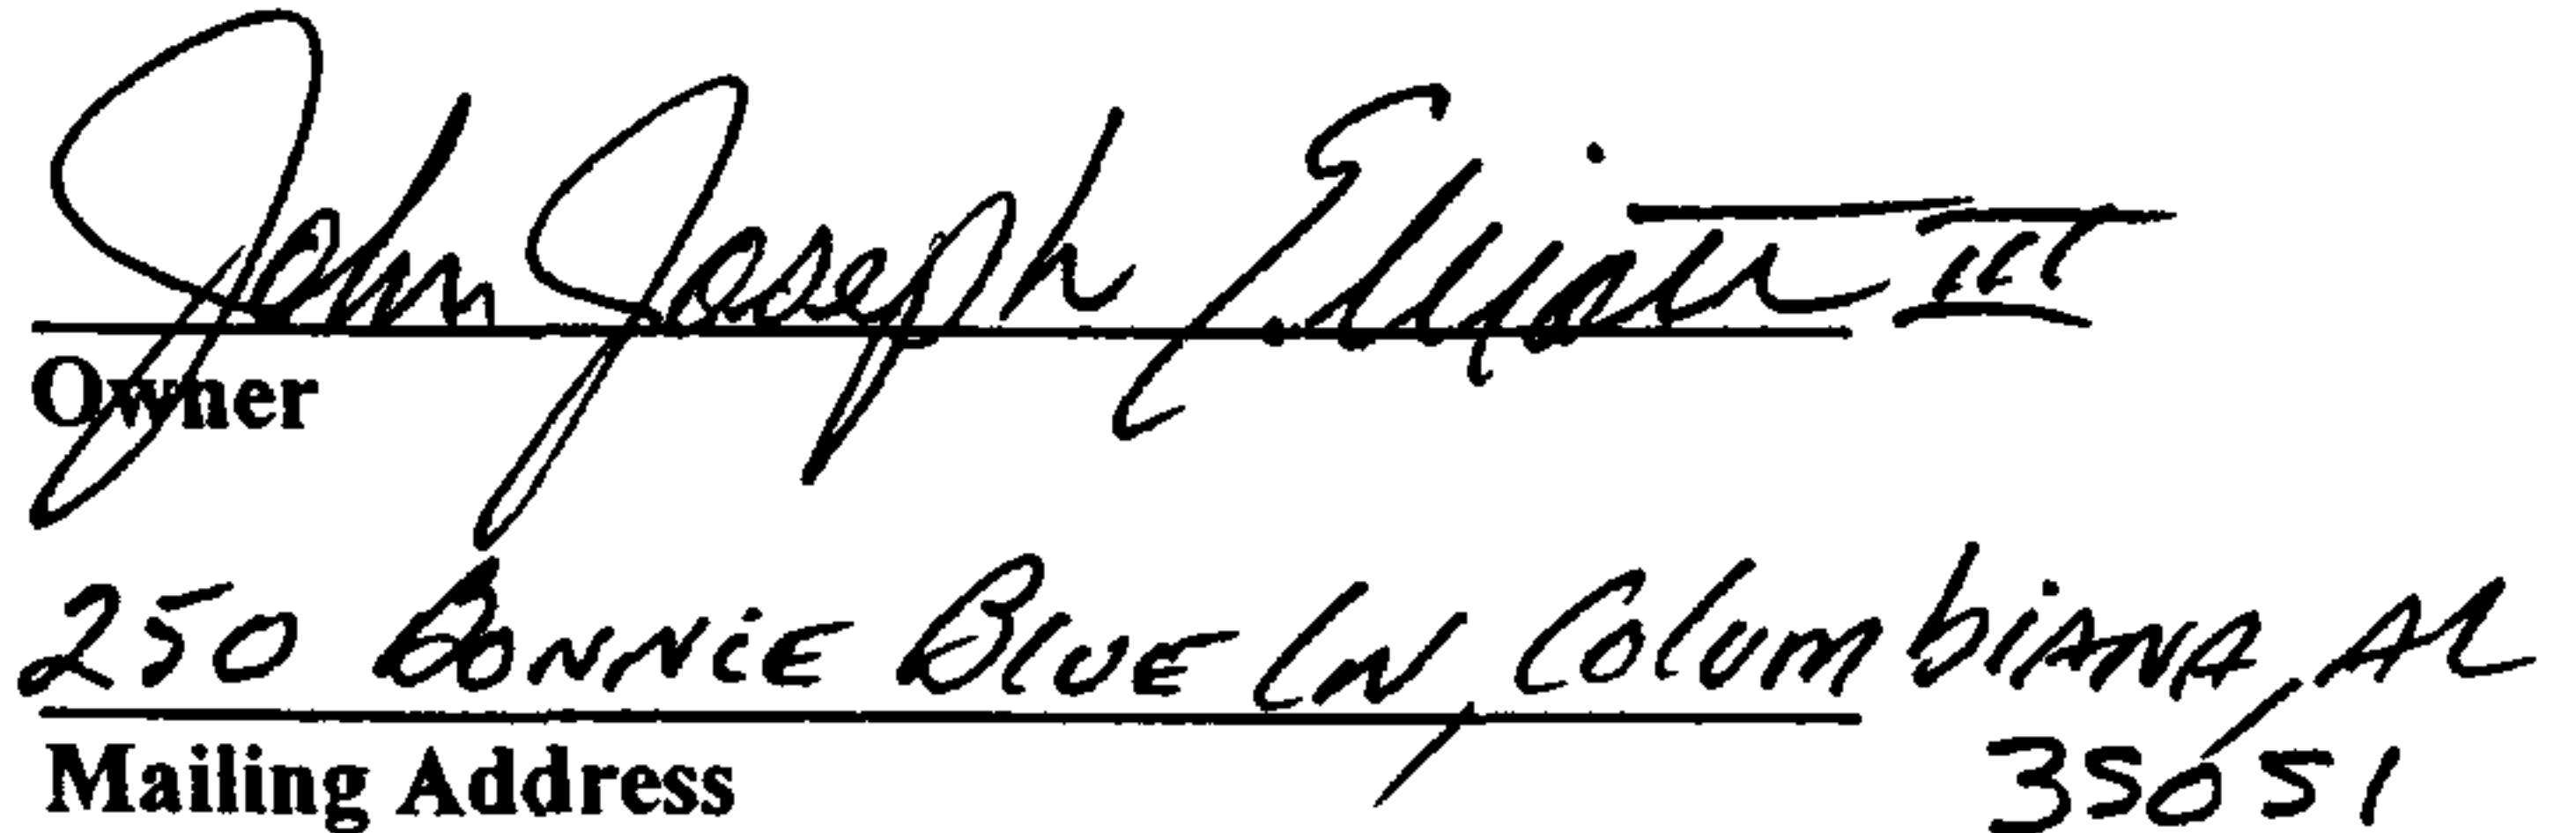 John Joseph Elliott III
Owner
250 BONNIE BLUE LN, Columbiana, AL
Mailing Address
35051